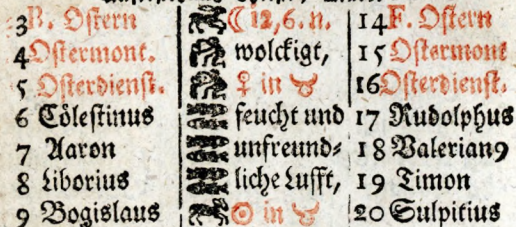 3 B. Ostern ☾ 12, 6. n. 14 F. Ostern
4 Ostermont. wolckigt, 15 Ostermont
5 Osterdienst. ♀ in ♉ 16 Osterdienst.
6 Cölestinus feucht und 17 Rudolphus
7 Aaron unfreund⸗ 18 Valerianꝰ
8 Liborius liche Lufft, 19 Timon
9 Bogislaus ☉ in ♉ 20 Sulpitius